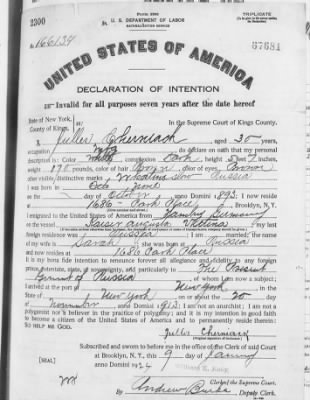 Form 2202
TRIPLICATE
2300
U. S. DEPARTMENT OF LABOR
NATURALIZATION SERVICE
No. 166134
67681
UNITED STATES OF AMERICA
DECLARATION OF INTENTION
Invalid for all purposes seven years after the date hereof
State of New York,
County of Kings,
In the Supreme Court of Kings County.
I, Juller Cherniack, aged 30 years,
occupation, do declare on oath that my personal
description is: Color White, complexion Dark, height 5 feet 7 inches,
weight 178 pounds, color of hair Brown, color of eyes Brown
other visible distinctive marks
I was born in Russia
on the day of October, anno Domini 1893; I now reside
at 1686 Park Place, Brooklyn, N.Y.
I emigrated to the United States of America from Hamburg Germany
on the vessel Kaiserin Augusta Victoria; my last
foreign residence was Russia; I am married; the name
of my wife is Sarah; she was born at Russia
and now resides at 1686 Park Place
It is my bona fide intention to renounce forever all allegiance and fidelity to any foreign
prince, potentate, state, or sovereignty, and particularly to The Present
Government of Russia, of whom I am now a subject;
I arrived at the port of New York, in the
State of New York, on or about the 20 day
of November, anno Domini 1913; I am not an anarchist; I am not a
polygamist nor a believer in the practice of polygamy; and it is my intention in good faith
to become a citizen of the United States of America and to permanently reside therein:
SO HELP ME GOD.
Juller Cherniack
(Original signature of declarant)
Subscribed and sworn to before me in the office of the Clerk of said Court
at Brooklyn, N. Y., this 9 day of January
[SEAL]
anno Domini 1924
Clerk of the Supreme Court.
By Andrew Burke, Deputy Clerk.